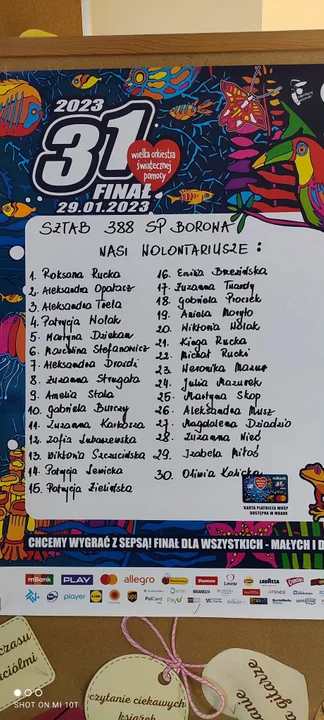 2023
31
FINAŁ
29.01.2023
wielka orkiestra
świątecznej
pomocy
SZTAB 388 SP BOROWA
NASI WOLONTARIUSZE :
1. Roksana Rucka
2. Aleksandra Opałacz
3. Aleksandra Trela
4. Patrycja Wolak
5. Martyna Dziekan
6. Marcelina Stefanowicz
7. Aleksandra Drozdi
8. Zuzanna Strugała
9. Amelia Stala
10. Gabriela Burczy
11. Zuzanna Karkosza
12. Zofia Łukaszewska
13. Wiktoria Szczucińska
14. Patrycja Jemioła
15. Patrycja Zielińska
16. Emilia Brzezińska
17. Zuzanna Twardy
18. Gabriela Proczek
19. Aniela Moryto
20. Wiktoria Wolak
21. Kinga Rucka
22. Michał Rucki
23. Weronika Mazur
24. Julia Mazurek
25. Martyna Skop
26. Aleksandra Musz
27. Magdalena Dziadzio
28. Zuzanna Nieć
29. Izabela Miłoś
30. Oliwia Kalicka
KARTA PŁATNICZA WOŚP
DOSTĘPNA W MBANK
CHCEMY WYGRAĆ Z SEPSĄ! FINAŁ DLA WSZYSTKICH - MAŁYCH I D
mBank PLAY mastercard allegro LAVAZZA
player LIDL PayU
czytanie ciekawych
książek
gitarze
SHOT ON MI 10T